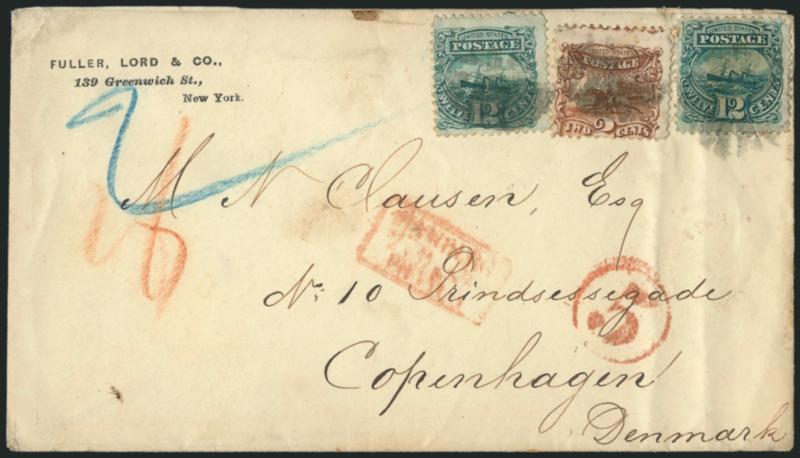 FULLER, LORD & CO.,
139 Greenwich St.,
New York.
UNITED STATES
POSTAGE
TWELVE 12 CENTS
UNITED STATES
POSTAGE
TWO 2 CENTS
UNITED STATES
POSTAGE
TWELVE 12 CENTS
2
M N Clausen, Esq
No: 10 Prindsessegade
5
Copenhagen
Denmark